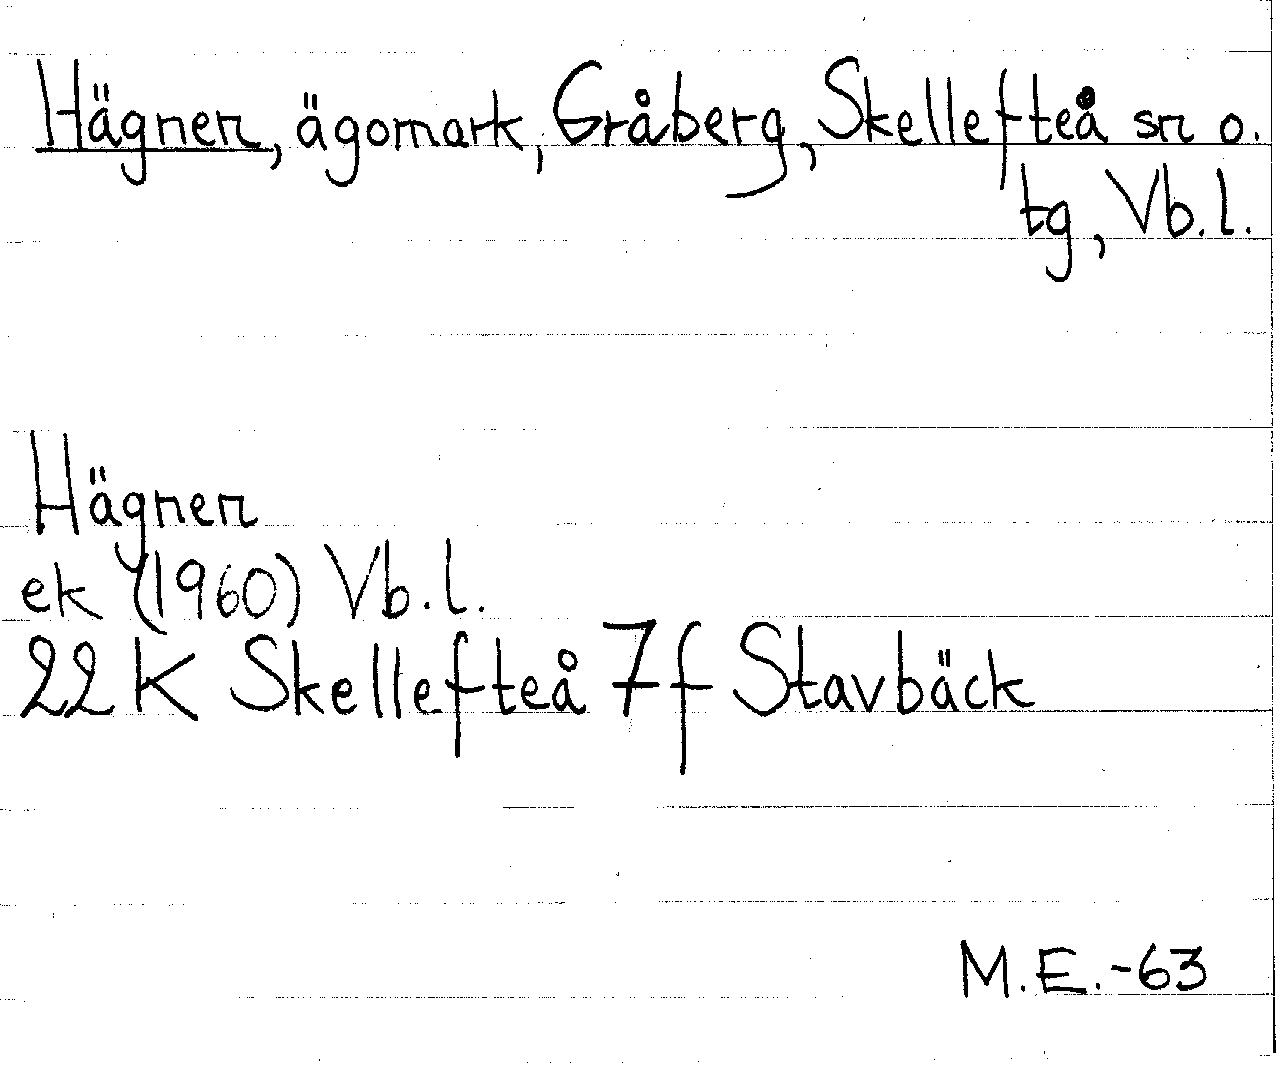 Hägnen, ägomark, Gråberg, Skellefteå sn o.
tg, Vb.l.
Hägnen
ek (1960) Vb.l.
22K Skellefteå 7f Stavbäck
M.E.-63